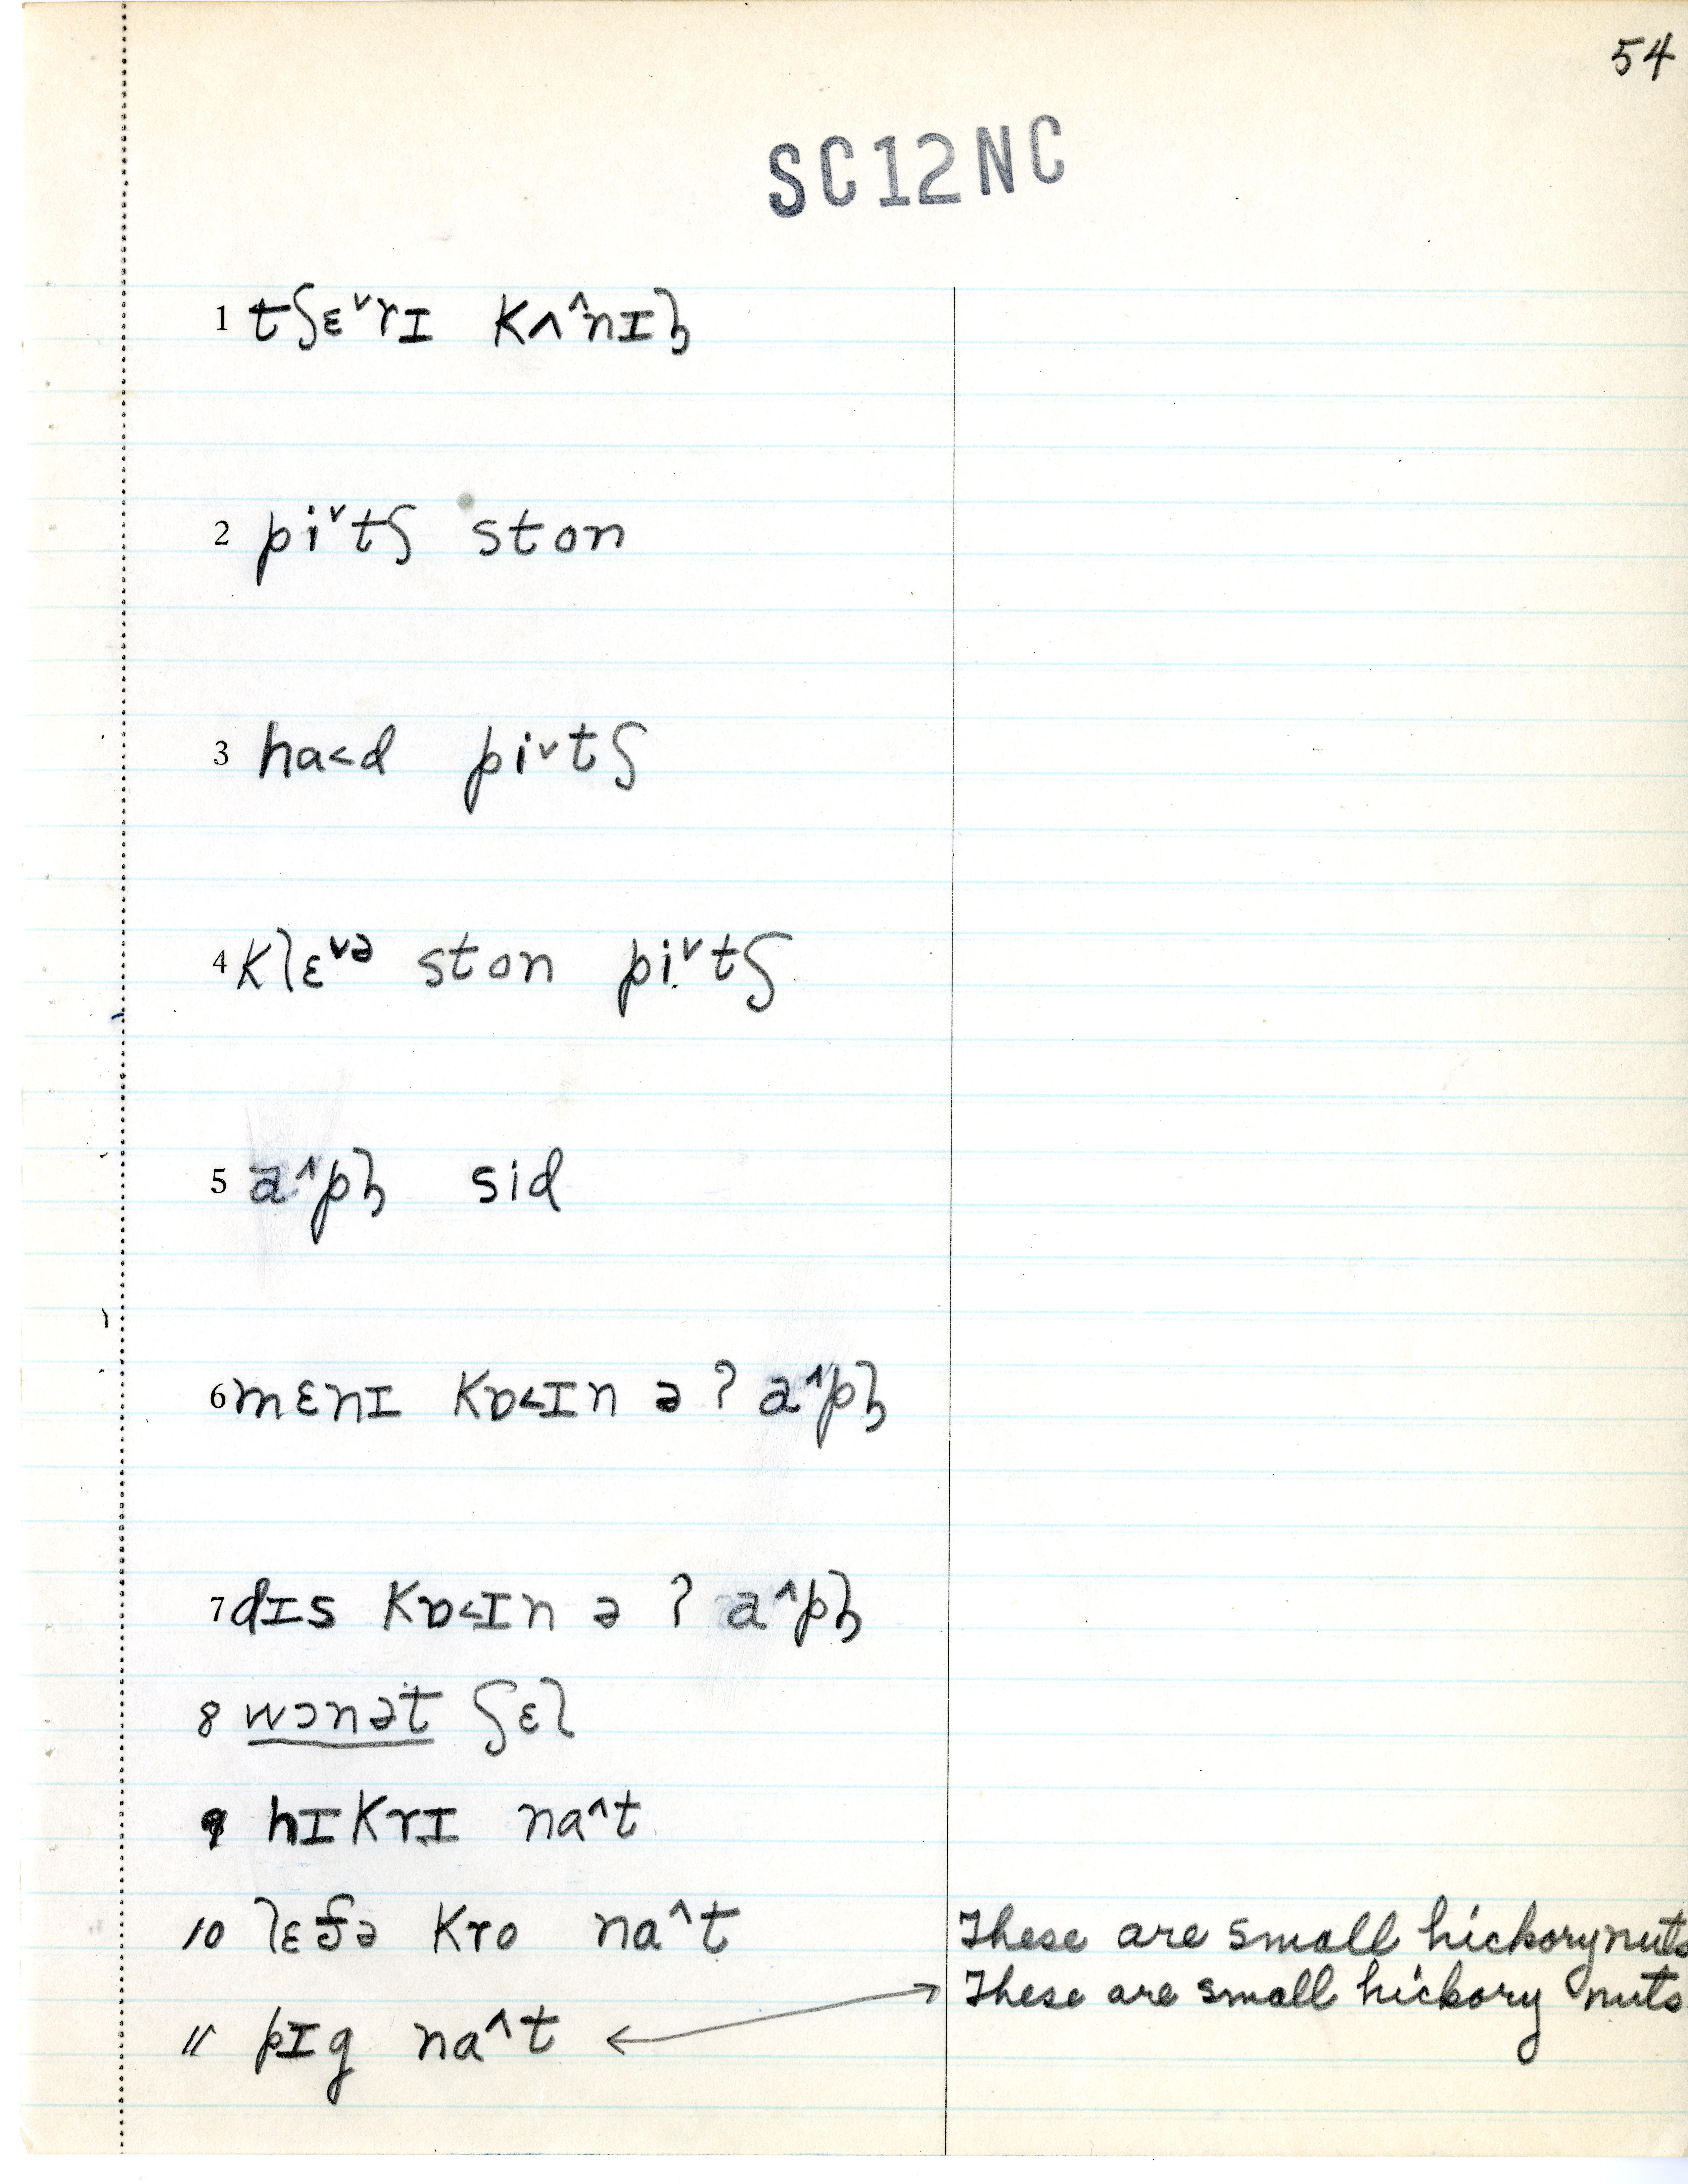 54
SC12NC
1 tʃɛ˅rɪ kʌ˄nɪɫ̩
2 pi˅tʃ ston
3 ha˂d pi˅tʃ
4 klɛ˅ə ston pi˅tʃ
5 a˄pɫ̩ sid
6 mɛnɪ kɒ˂ɪn ə ʔ a˄pɫ̩
7 dɪs kɒ˂ɪn ə ʔ a˄pɫ̩
8 wɔnət ʃɛl
9 hɪkrɪ na˄t
10 kro na˄t These are small hickorynuts
These are small hickory nuts
11 pɪg na˄t